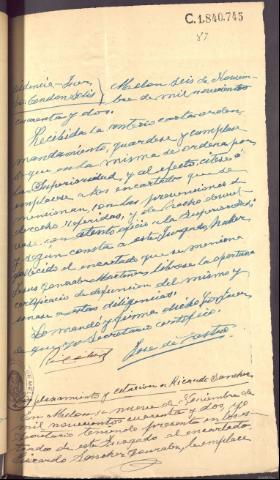 C.1.840.745
87
Providencia - Juez
Melon seis de Noviem-
bre de mil novecientos
cuarenta y dos.
Recibida la anterior carta orden
mandamiento, guardese y cumplase
lo que en la misma se ordena por
la Superioridad, y al efecto, citese ó
emplacese a los encartados que se
mencionan, con las prevenciones de
derecho referidas, y, de hecho devuel-
vase con atento oficio a la Superioridad;
y segun consta a este Juzgado, haber
fallecido el encartado que se menciona
Jesus Gonzalez Martinez, librese la oportuna
certificacion de defuncion del mismo y
unase a estas diligencias.
Lo mandó y firma dicho Sr Juez,
de que yo Secretario certifico.
Jose de Castro
Emplazamiento y citacion a Ricardo Sanchez
En Melon, a nueve de Noviembre de
mil novecientos cuarenta y dos, yo
Secretario teniendo presente en los es-
trados de este Juzgado al encartado
Ricardo Sanchez, le emplace